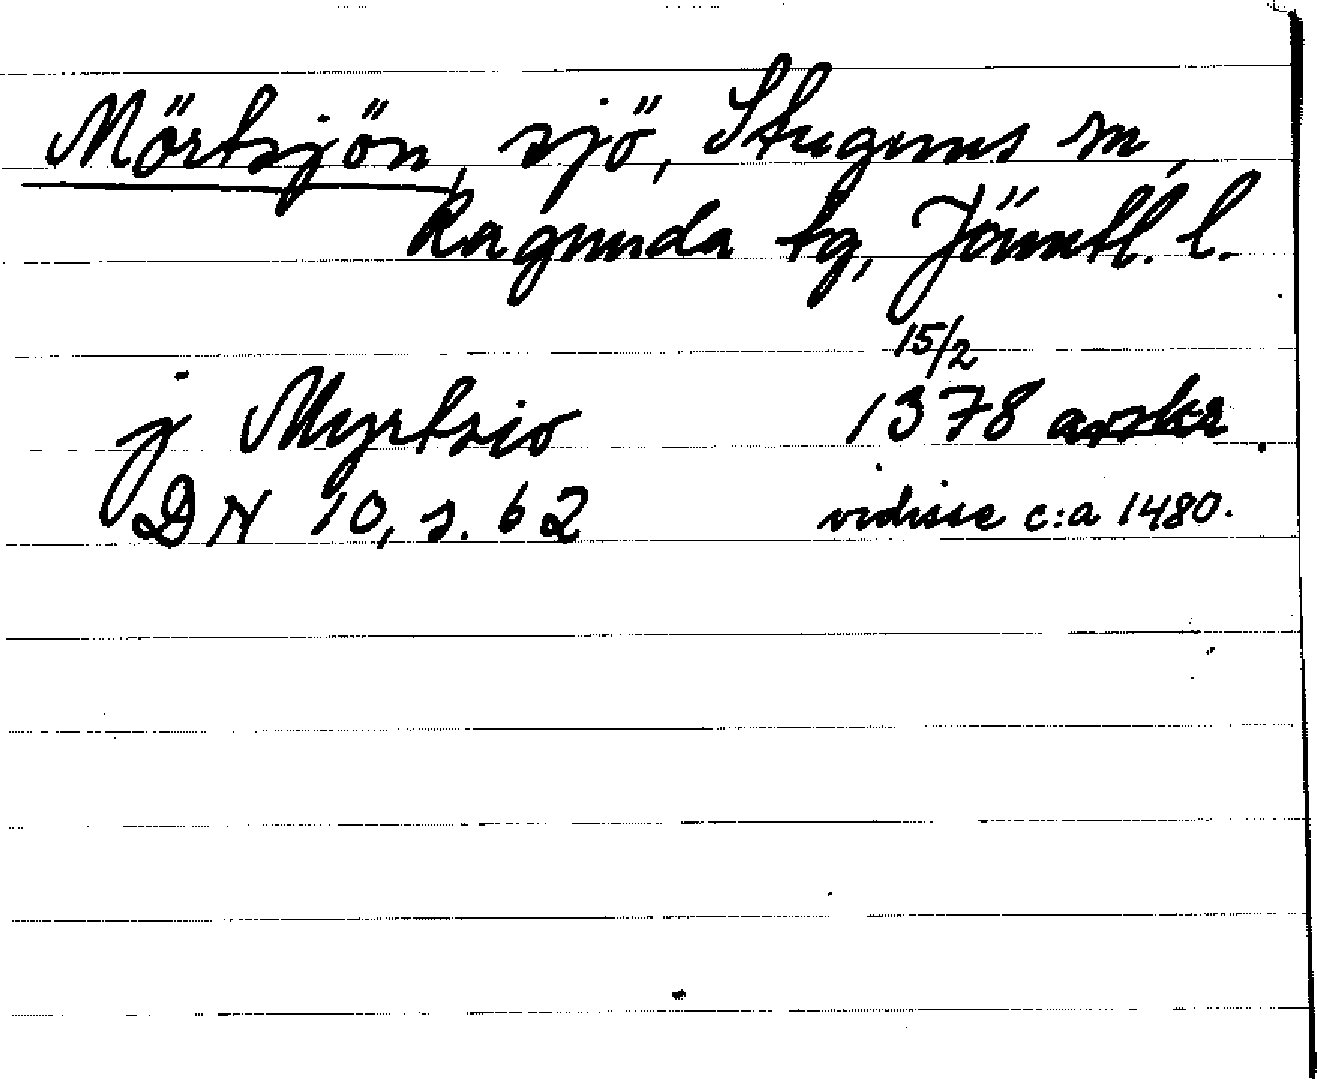 Mörtsjön, sjö, Stuguns sn,
Ragunda tg, Jämtl. l.
15/2
j Myrtsio 1378 avskr
DN 10, s. 62 vidisse c:a 1480.